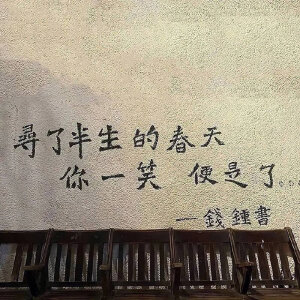 尋了半生的春天
你一笑 便是了...
—錢鍾書